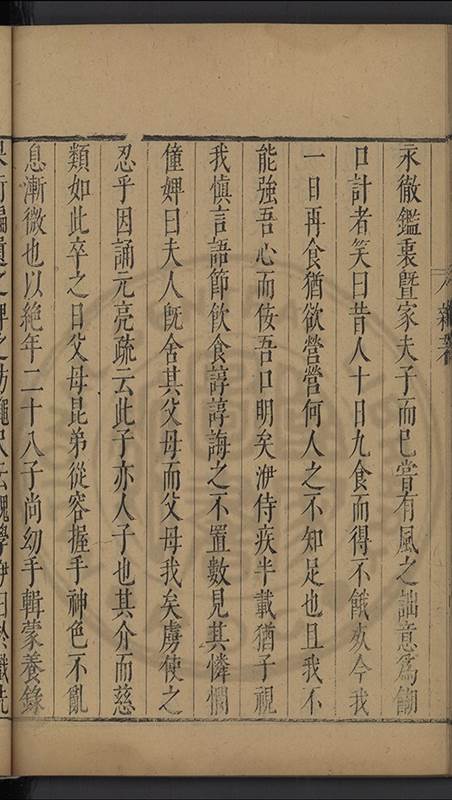 永徹鑑裏暨家夫子而已嘗有風之詘意爲餬
口計者笑曰昔人十日九食而得不餓欤今我
一日再食猶欲營營何人之不知足也且我不
能強吾心而佞吾口明矣洢侍疾半載猶子視
我愼言語節飲食諄諄誨之不置數見其憐憫
僮婢曰夫人旣舍其父母而父母我矣虜使之
忍乎因誦元亮疏云此子亦人子也其介而慈
類如此卒之日父母昆弟從容握手神色不亂
息漸微也以絶年二十八子尚幼手輯蒙養錄